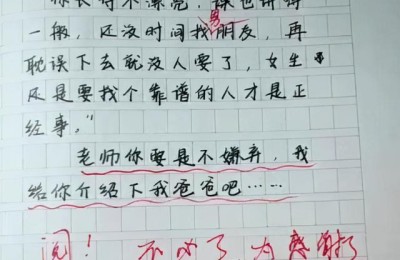 你长得不漂亮，课也讲得
一般，还没时间找男朋友，再
耽误下去就没人要了，女生
还是要找个靠谱的人才是正
经事。"
老师你要是不嫌弃，我
给你介绍下我爸爸吧……
阅！不必了，为感谢